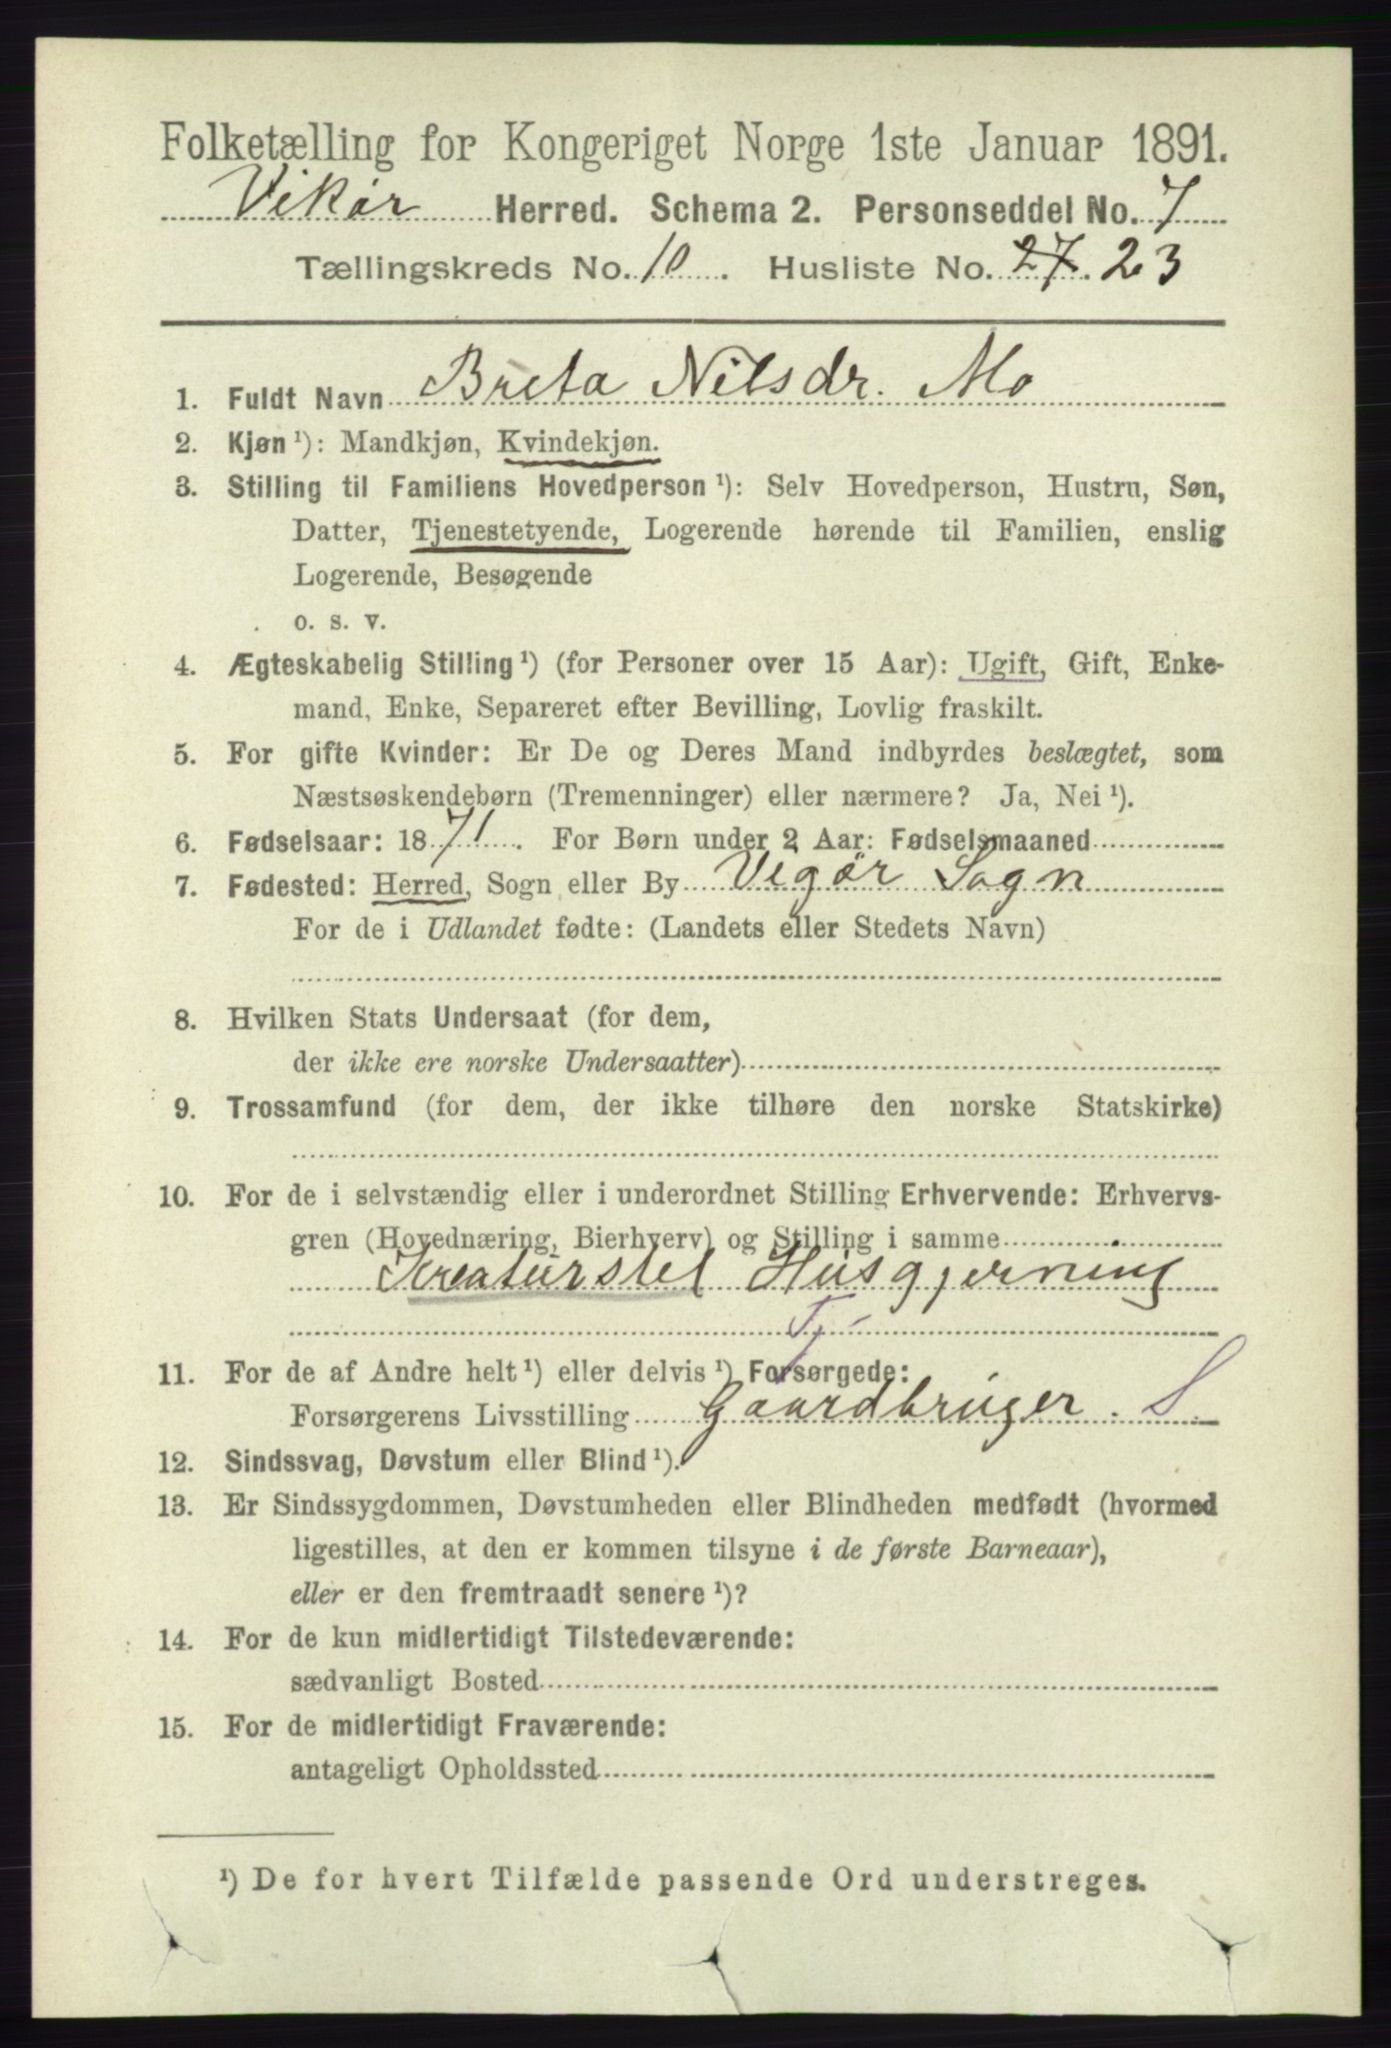 Folketælling for Kongeriget Norge 1ste Januar 1891.
Vikør Herred. Schema 2. Personseddel No. 7
Tællingskreds No. 10. Husliste No. 27. 23
1. Fuldt Navn Breta Nilsdr. Mo
2. Kjøn ¹): Mandkjøn, Kvindekjøn.
3. Stilling til Familiens Hovedperson ¹): Selv Hovedperson, Hustru, Søn,
Datter, Tjenestetyende, Logerende hørende til Familien, enslig
Logerende, Besøgende
o. s. v.
4. Ægteskabelig Stilling ¹) (for Personer over 15 Aar): Ugift, Gift, Enke-
mand, Enke, Separeret efter Bevilling, Lovlig fraskilt.
5. For gifte Kvinder: Er De og Deres Mand indbyrdes beslægtet, som
Næstsøskendebørn (Tremenninger) eller nærmere? Ja, Nei ¹).
6. Fødselsaar: 1871. For Børn under 2 Aar: Fødselsmaaned
7. Fødested: Herred, Sogn eller By Vigør Sogn
For de i Udlandet fødte: (Landets eller Stedets Navn)
8. Hvilken Stats Undersaat (for dem,
der ikke ere norske Undersaatter)
9. Trossamfund (for dem, der ikke tilhøre den norske Statskirke)
10. For de i selvstændig eller i underordnet Stilling Erhvervende: Erhvervs-
gren (Hovednæring, Bierhverv) og Stilling i samme
Kreaturstel Husgjerning
Tj
11. For de af Andre helt ¹) eller delvis ¹) Forsørgede:
Forsørgerens Livsstilling Gaardbruger. S.
12. Sindssvag, Døvstum eller Blind ¹).
13. Er Sindssygdommen, Døvstumheden eller Blindheden medfødt (hvormed
ligestilles, at den er kommen tilsyne i de første Barneaar),
eller er den fremtraadt senere ¹)?
14. For de kun midlertidigt Tilstedeværende:
sædvanligt Bosted
15. For de midlertidigt Fraværende:
antageligt Opholdssted
¹) De for hvert Tilfælde passende Ord understreges.